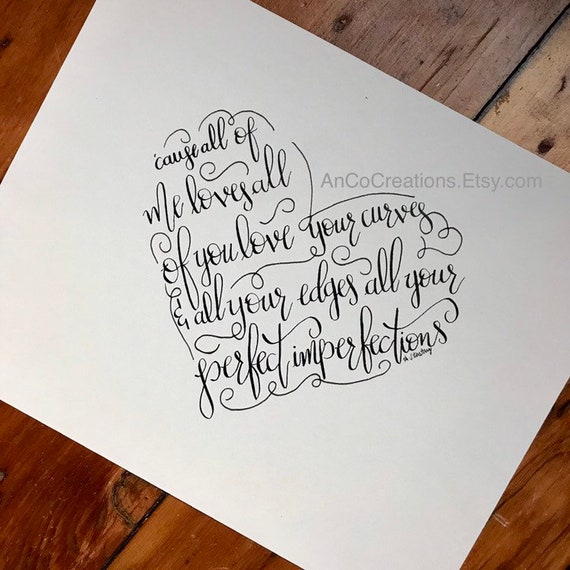 'cause all of
Me loves all
of you love your curves
& all your edges all your
perfect imperfections
AnCoCreations.Etsy.com